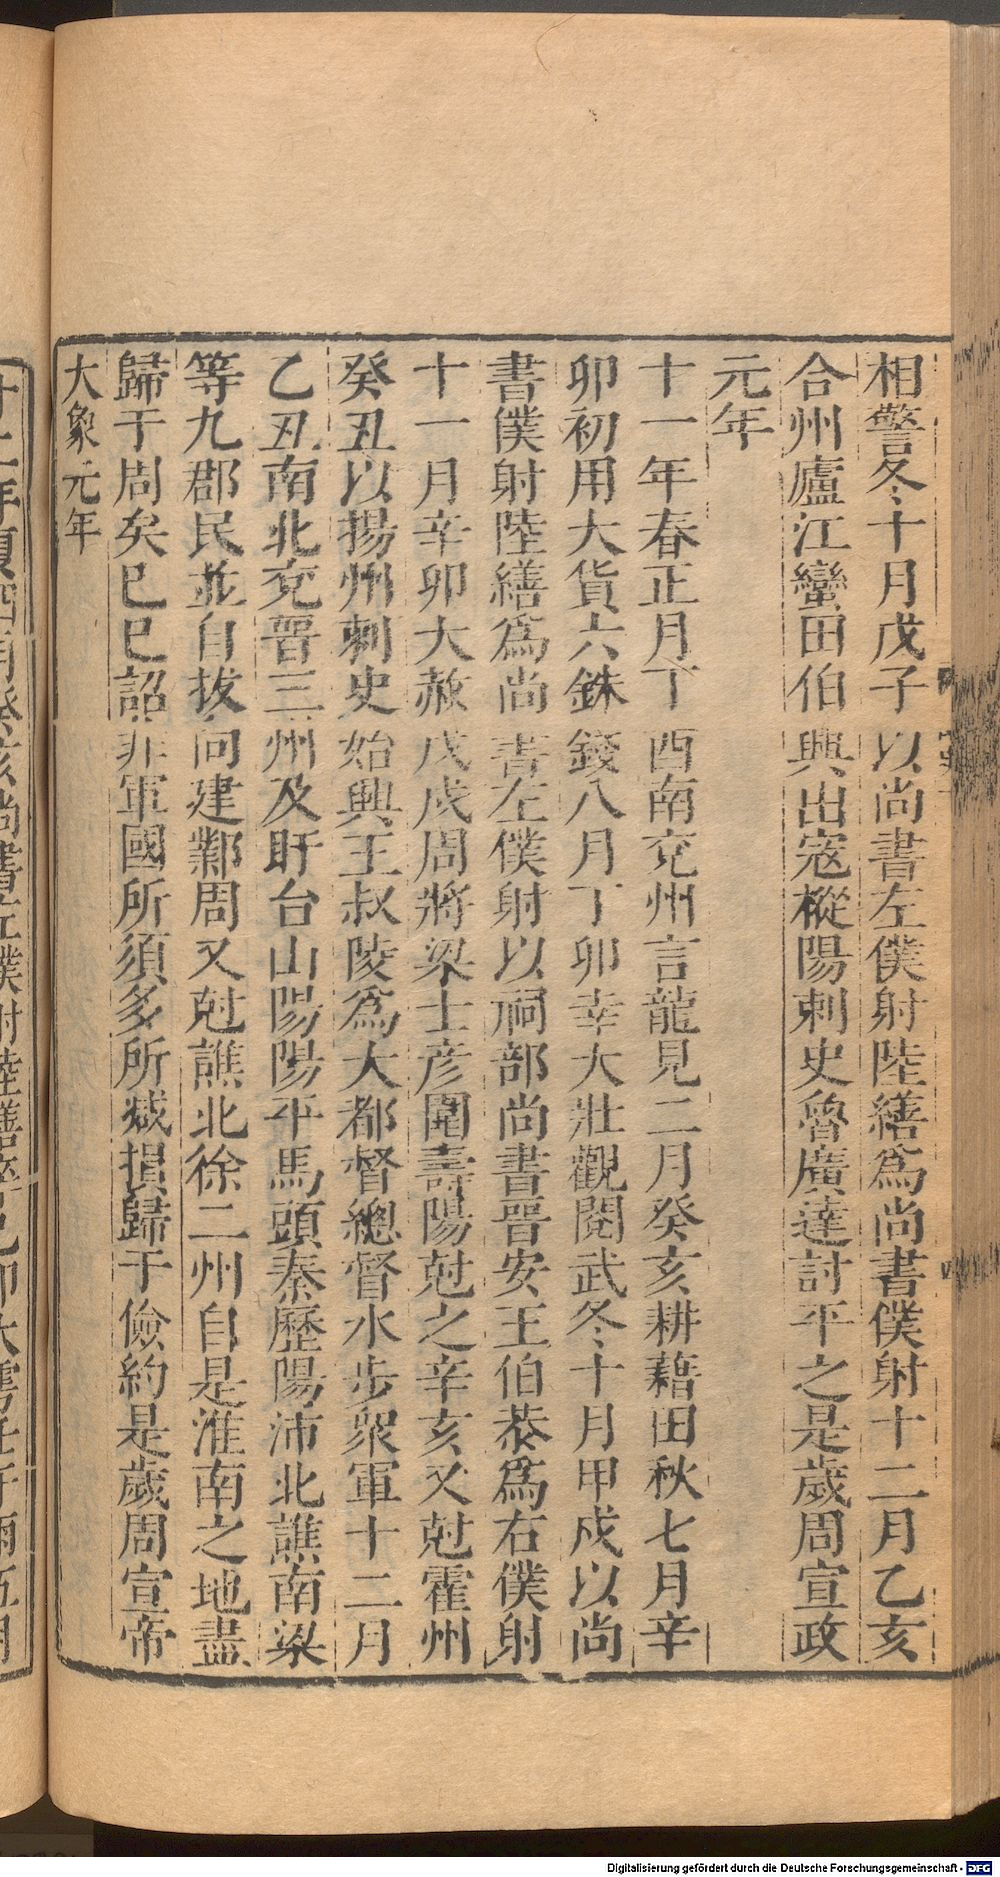 相警冬十月戊子以尚書左僕射陸繕爲尚書僕射十二月乙亥
合州廬江蠻田伯興出寇樅陽刺史魯廣達討平之是歲周宣政
元年
十一年春正月丁酉南兖州言龍見二月癸亥耕藉田秋七月辛
卯初用大貨六銖錢八月丁卯幸大壯觀閱武冬十月甲戌以尚
書僕射陸繕爲尚書左僕射以祠部尚書晉安王伯恭爲右僕射
十一月辛卯大赦戊戌周將梁士彥圍壽陽尅之辛亥又尅霍州
癸丑以揚州刺史始興王叔陵爲大都督總督水步衆軍十二月
乙丑南北兖晉三州及盱台山陽陽平馬頭秦歷陽沛北譙南梁
等九郡民並自拔向建鄴周又尅譙北徐二州自是淮南之地盡
歸于周矣已巳詔非軍國所須多所減損歸于儉約是歲周宣帝
大象元年
十二年夏四月癸亥尚書左僕射陸繕卒己卯大雩壬午雨五月
Digitalisierung gefördert durch die Deutsche Forschungsgemeinschaft - DFG